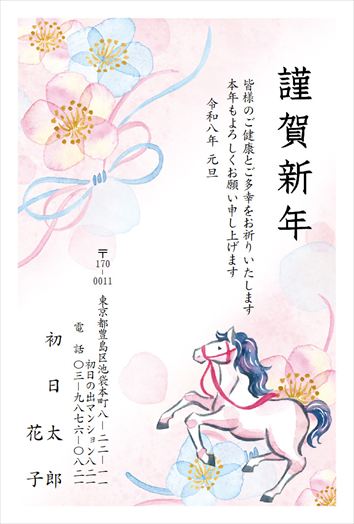 謹賀新年
皆様のご健康とご多幸をお祈りいたします
本年もよろしくお願い申し上げます
令和八年 元旦
〒170-0011
東京都豊島区池袋本町八-二二-一一
初日の出マンション八二一
電話〇三-九八七六-〇八二一
初日 太郎
花子